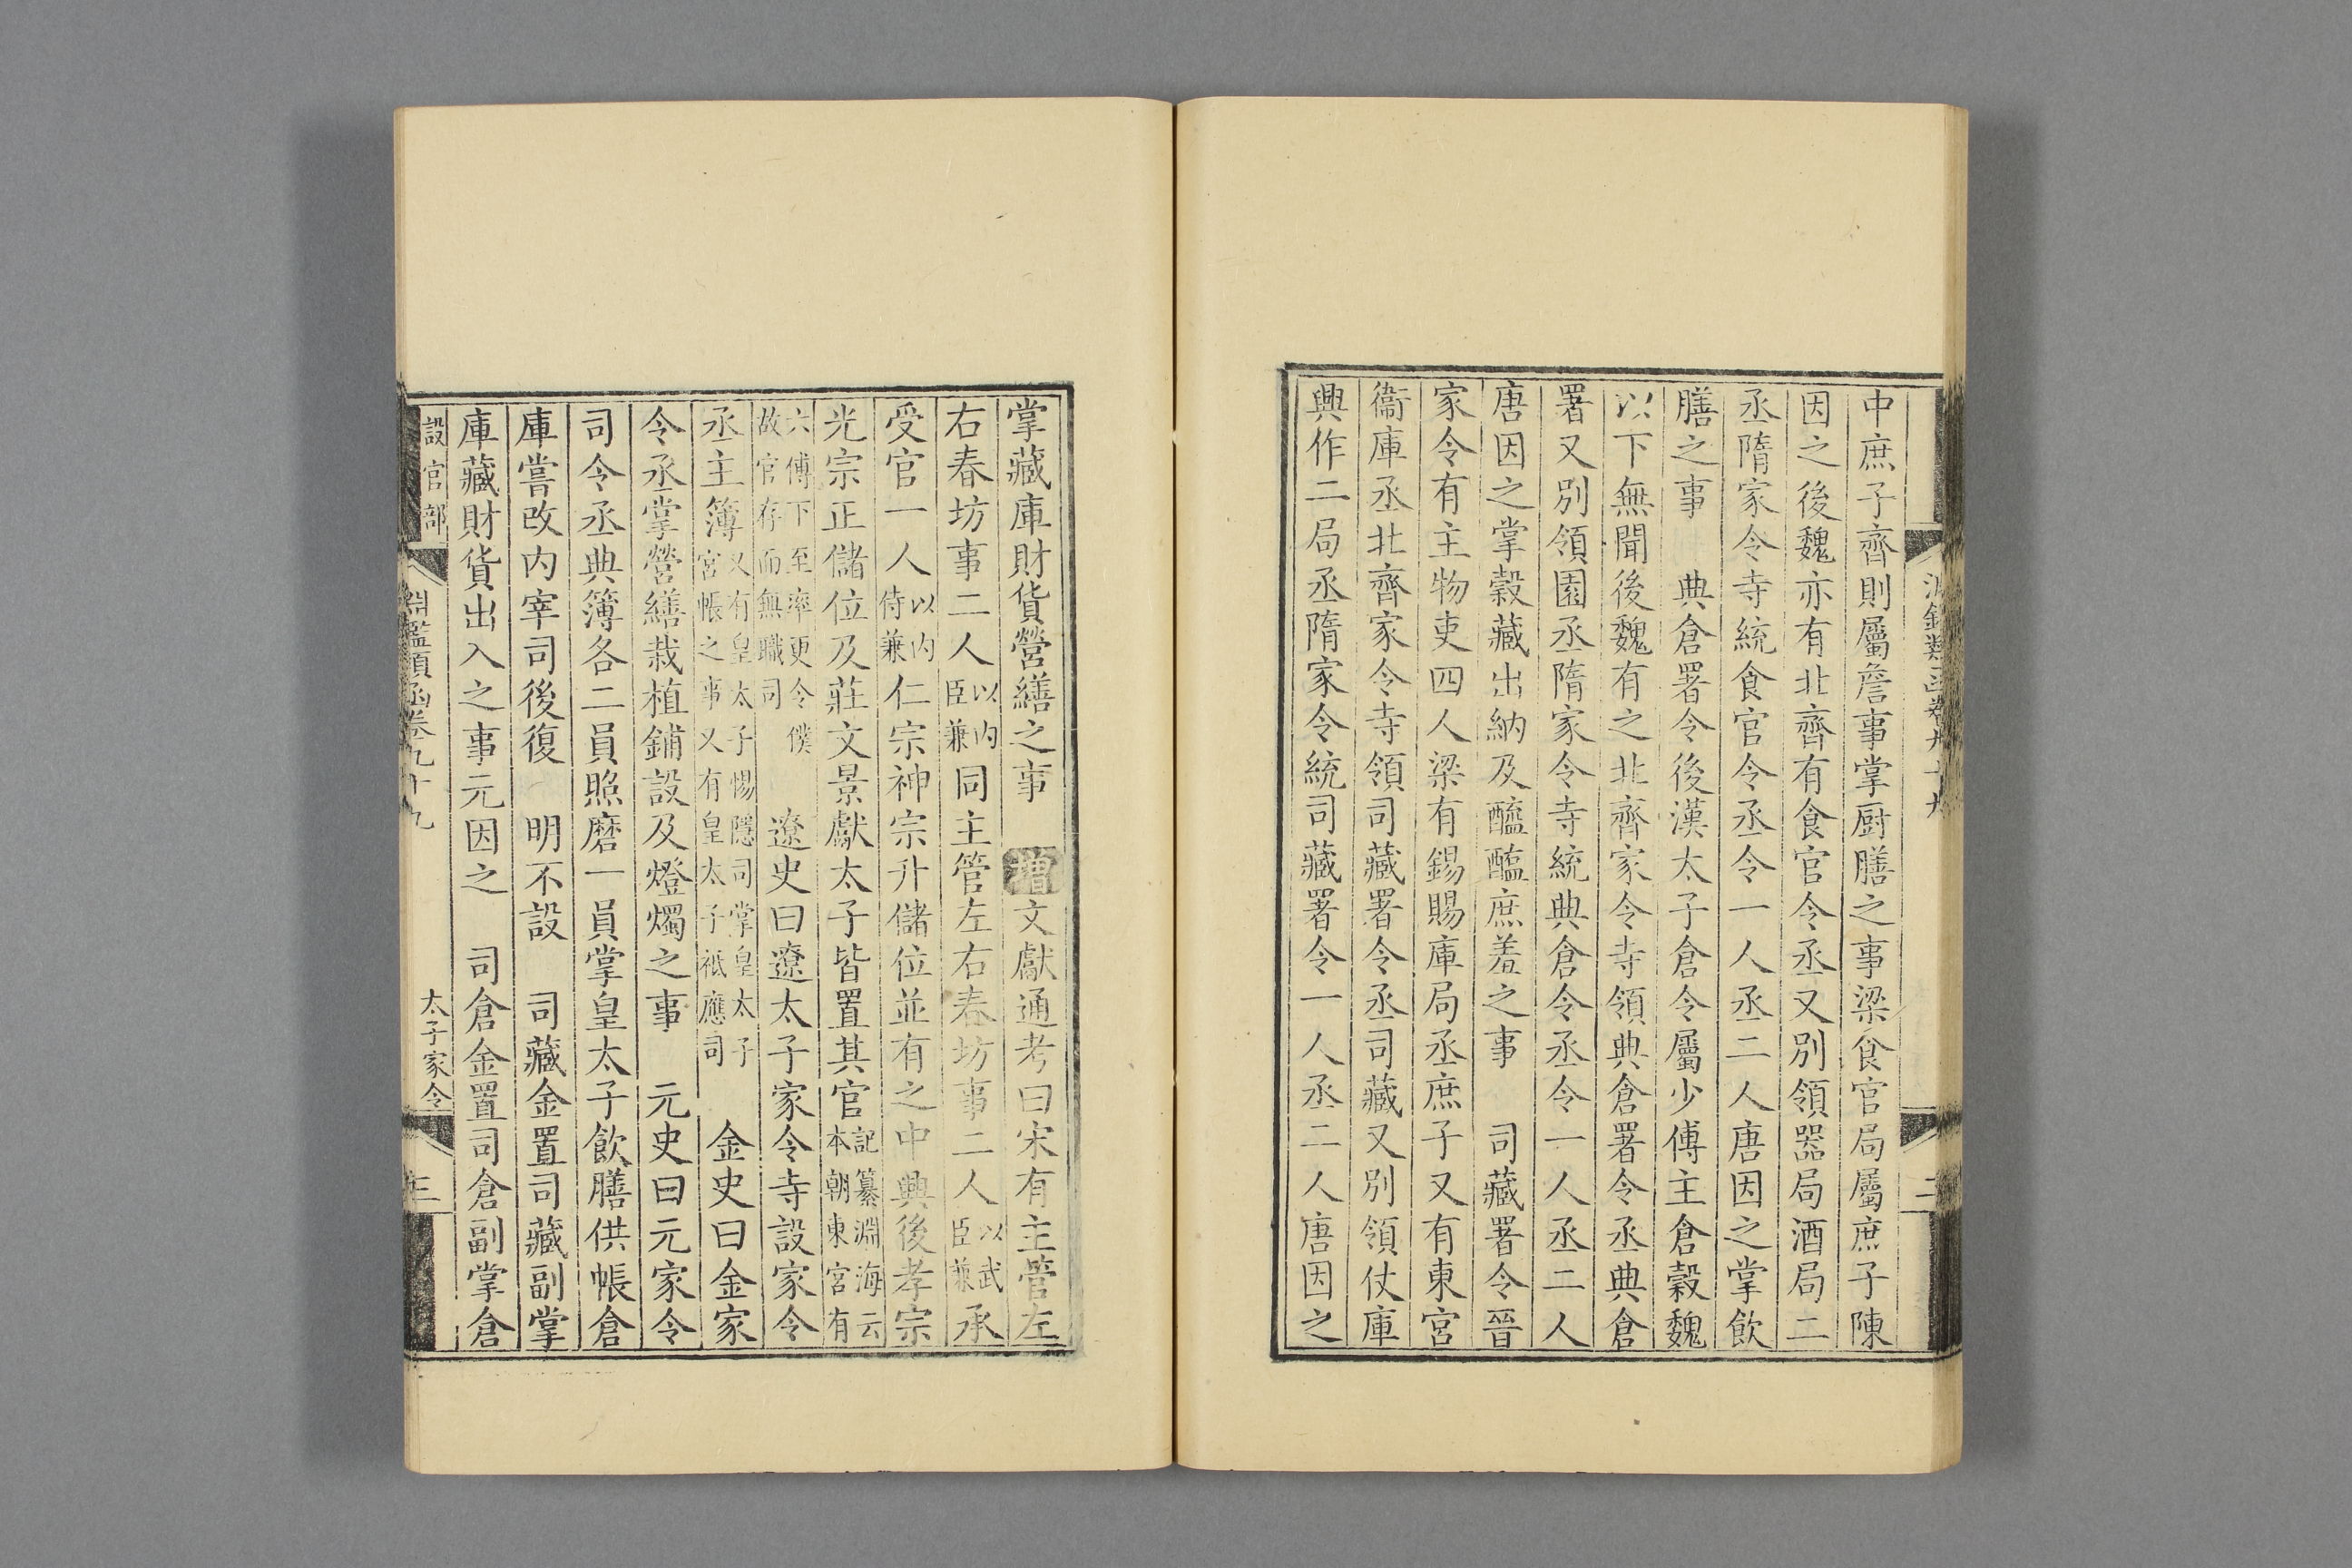 中庶子齊則屬詹事掌厨膳之事梁食官局屬庶子陳
因之後魏亦有北齊有食官令丞又別領器局酒局二
丞隋家令寺統食官令丞令一人丞二人唐因之掌飲
膳之事　典倉署令後漢太子倉令屬少傅主倉穀魏
以下無聞後魏有之北齊家令寺領典倉署令丞典倉
署又別領園丞隋家令寺統典倉令丞令一人丞二人
唐因之掌穀藏出納及醯醢庶羞之事　司藏署令晉
家令有主物吏四人梁有錫賜庫局丞庶子又有東宮
衞庫丞北齊家令寺領司藏署令丞司藏又別領仗庫
興作二局丞隋家令統司藏署令一人丞二人唐因之
掌藏庫財貨營繕之事　增文獻通考曰宋有主管左
右春坊事二人以内臣兼同主管左右春坊事二人以武臣兼承
受官一人以内侍兼仁宗神宗升儲位並有之中興後孝宗
光宗正儲位及莊文景獻太子皆置其官記纂淵海云本朝東宮有
六傅下至率更令僕故官存而無職司　遼史曰遼太子家令寺設家令
丞主簿又有皇太子惕隱司掌皇太子宮帳之事又有皇太子祗應司　金史曰金家
令丞掌營繕栽植鋪設及燈燭之事　元史曰元家令
司令丞典簿各二員照磨一員掌皇太子飲膳供帳倉
庫嘗改内宰司後復　明不設　司藏金置司藏副掌
庫藏財貨出入之事元因之　司倉金置司倉副掌倉
設官部
淵鑑類函卷九十九
太子家令
三